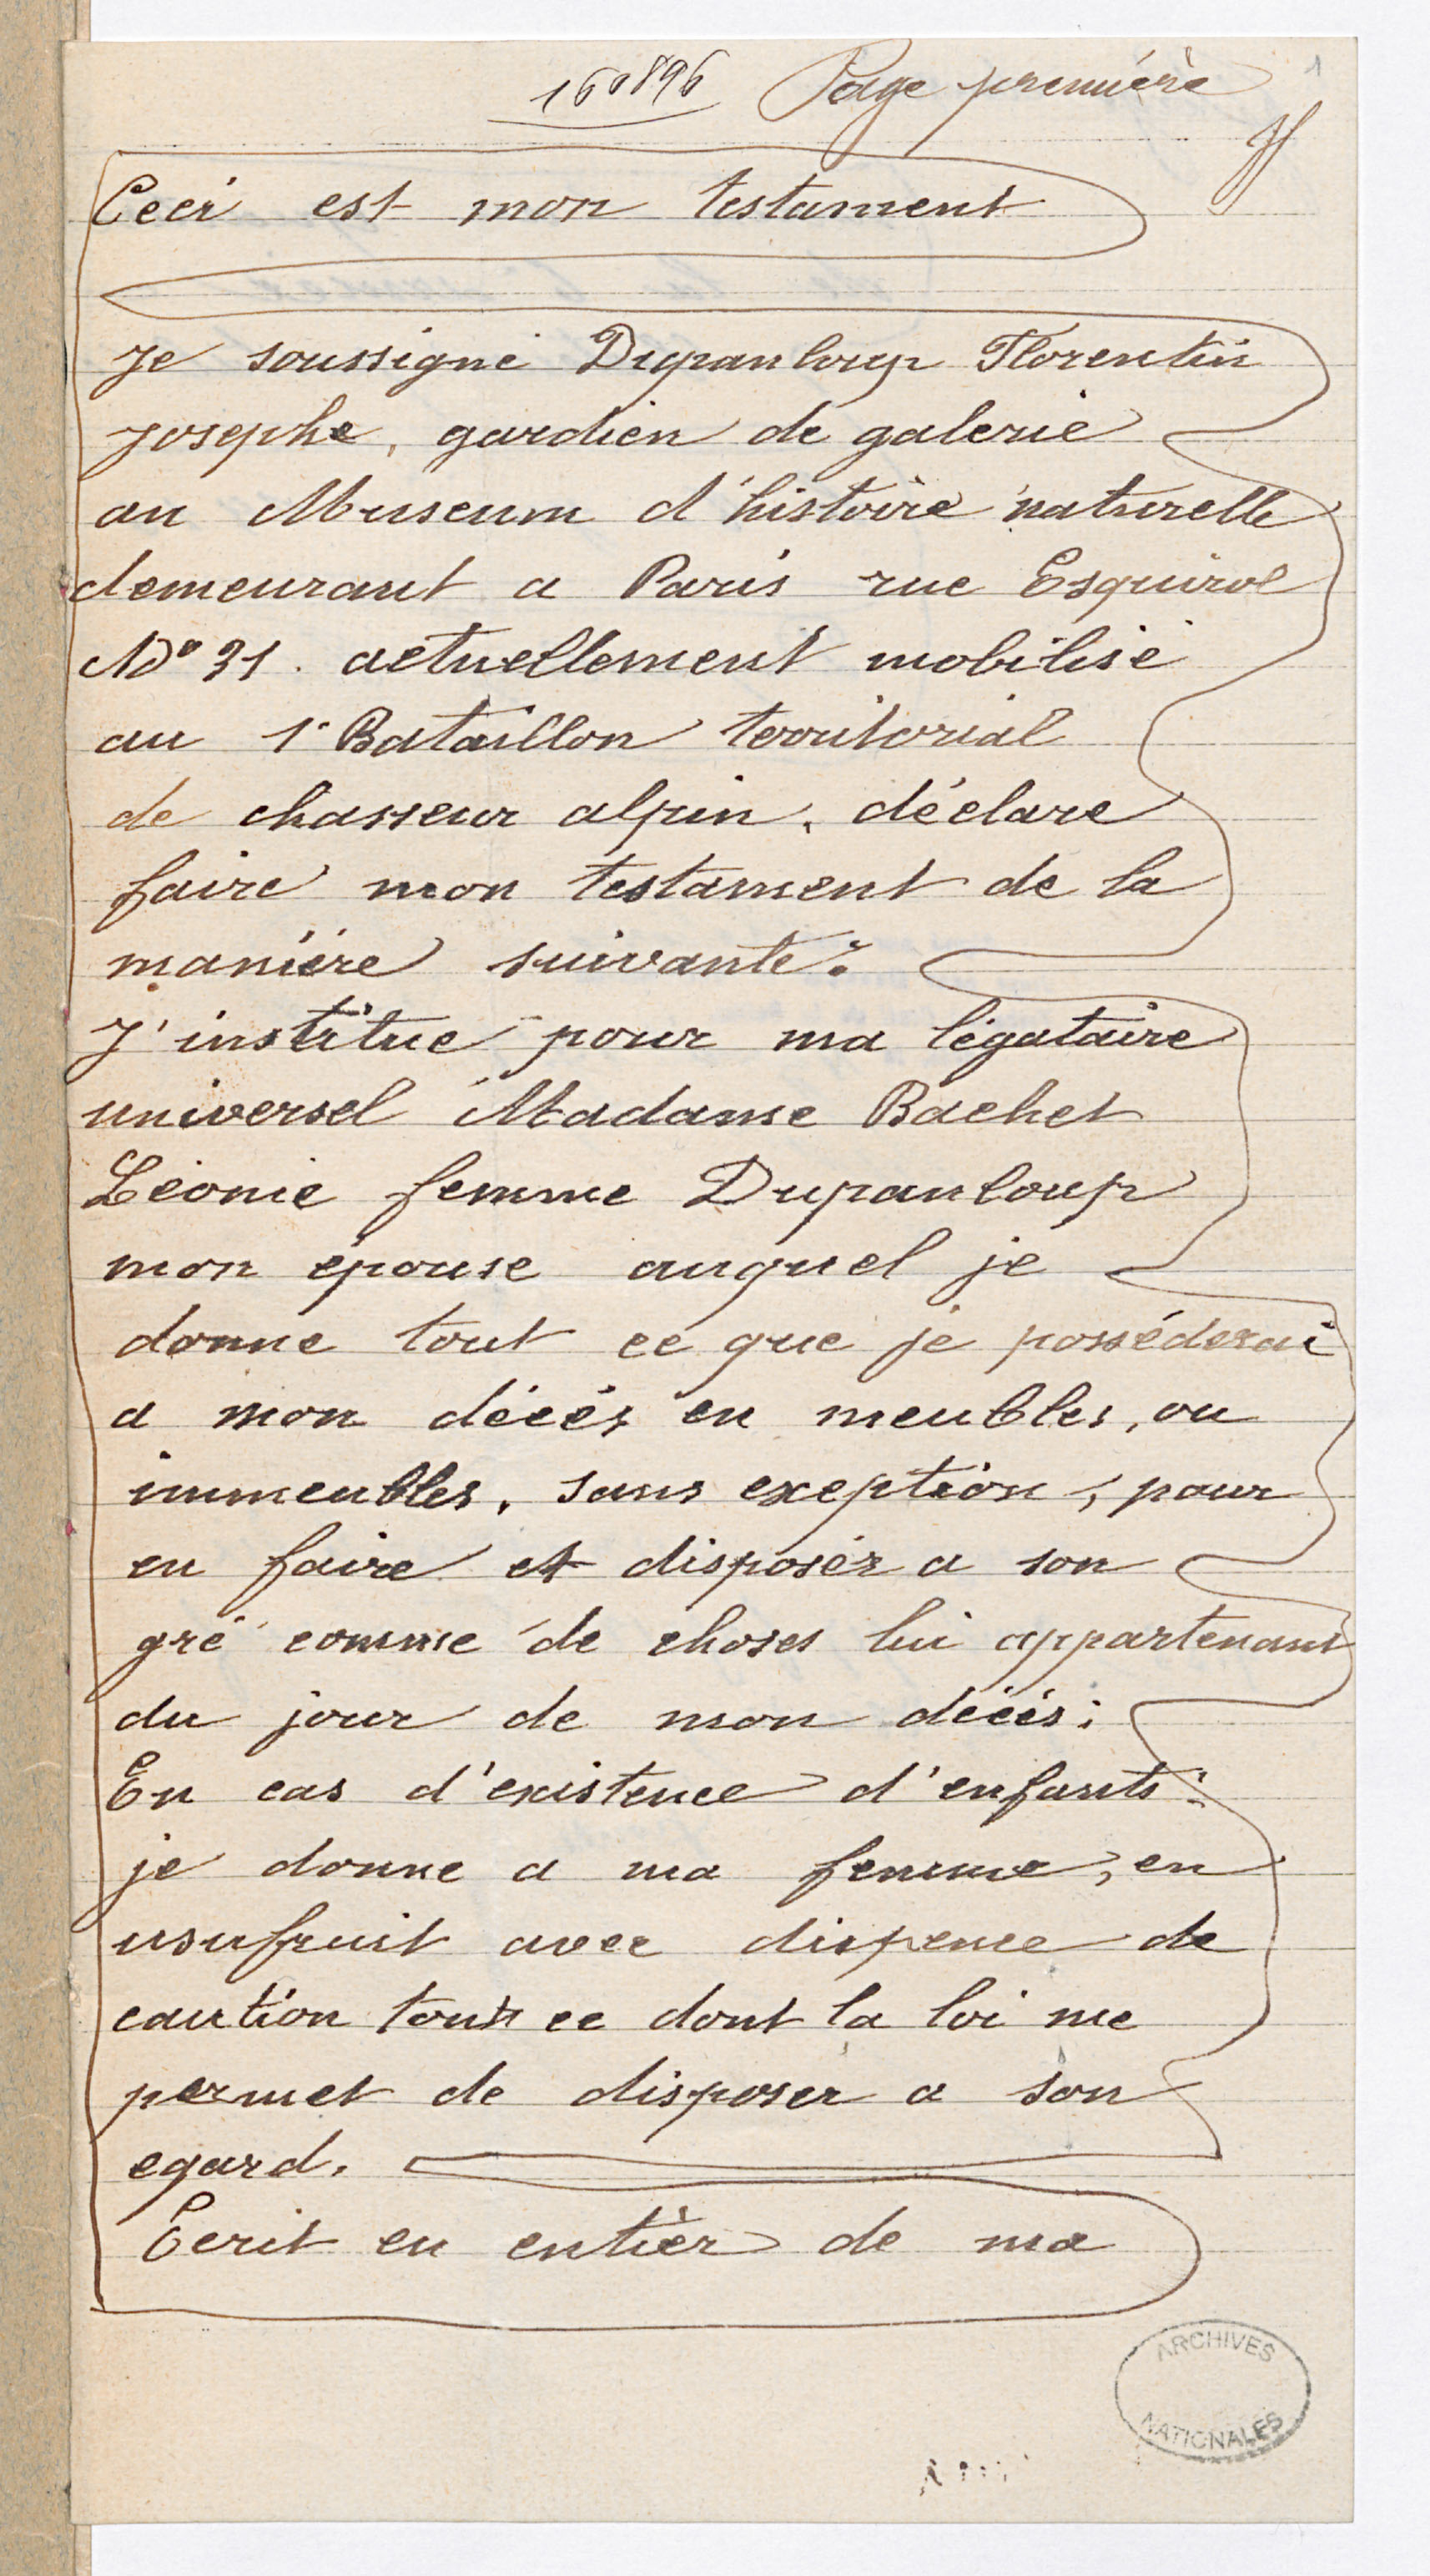 160896 Page première
1
Ceci est mon testament
Je soussigné Dupanloup Florentin
Josephe, gardien de galerie
au Museum d'histoire naturelle
demeurant a Paris rue Esquirol
N° 31. actuellement mobilisé
au 1er Bataillon territorial
de chasseur alpin, déclare
faire mon testament de la
manière suivante:
J'institue pour ma légataire
universel Madame Bachet
Léonie femme Dupanloup
mon épouse auquel je
donne tout ce que je posséderai
a mon décès en meubles, ou
immeubles, sans exeption, pour
en faire et disposér a son
gré comme de choses lui appartenant
du jour de mon décés;
En cas d'existence d'enfants:
je donne a ma femme, en
usufruit avec dispence de
caution tout ce dont la loi me
permet de disposer a son
egard.
Ecrit en entièr de ma
ARCHIVES
NATIONALES